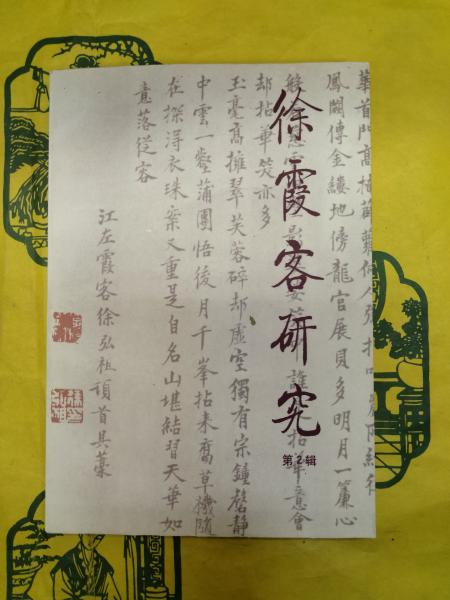 徐霞客研究
第2辑
華首門高
鳳闕傳金縷地傍龍宮展貝多明月一簾心
意會
却拈華笑亦多
玉毫高擁翠芙蓉碎却虛空獨有宗鐘磬靜
中雲一壑蒲團悟後月千峯拈來腐草機隨
在探得衣珠案又重是自名山堪結習天華如
意落從容
江左霞客徐弘祖頓首具藁